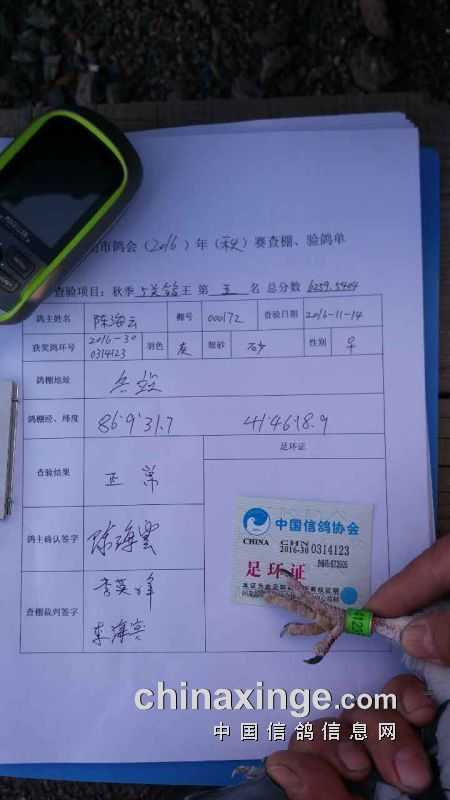 MAGELLAN
市鸽会（2016）年（秋）赛查棚、验鸽单
查验项目：秋季 鸽王 第 五 名 总分数 6259.5404
鸽主姓名 陈海云 棚号 000172 查验日期 2016-11-14
获奖鸽环号 2016-30 0314123 羽色 灰 眼砂 砂 性别 ♀
鸽棚地址
鸽棚经、纬度 86°9'31.7 41°46'18.9
查验结果 正常 足环证
鸽主确认签字 陈海雲
查棚裁判签字
中国信鸽协会
CHINA CHN
2016-30 0314123
足环证
chinaxinge.com
中国信鸽信息网